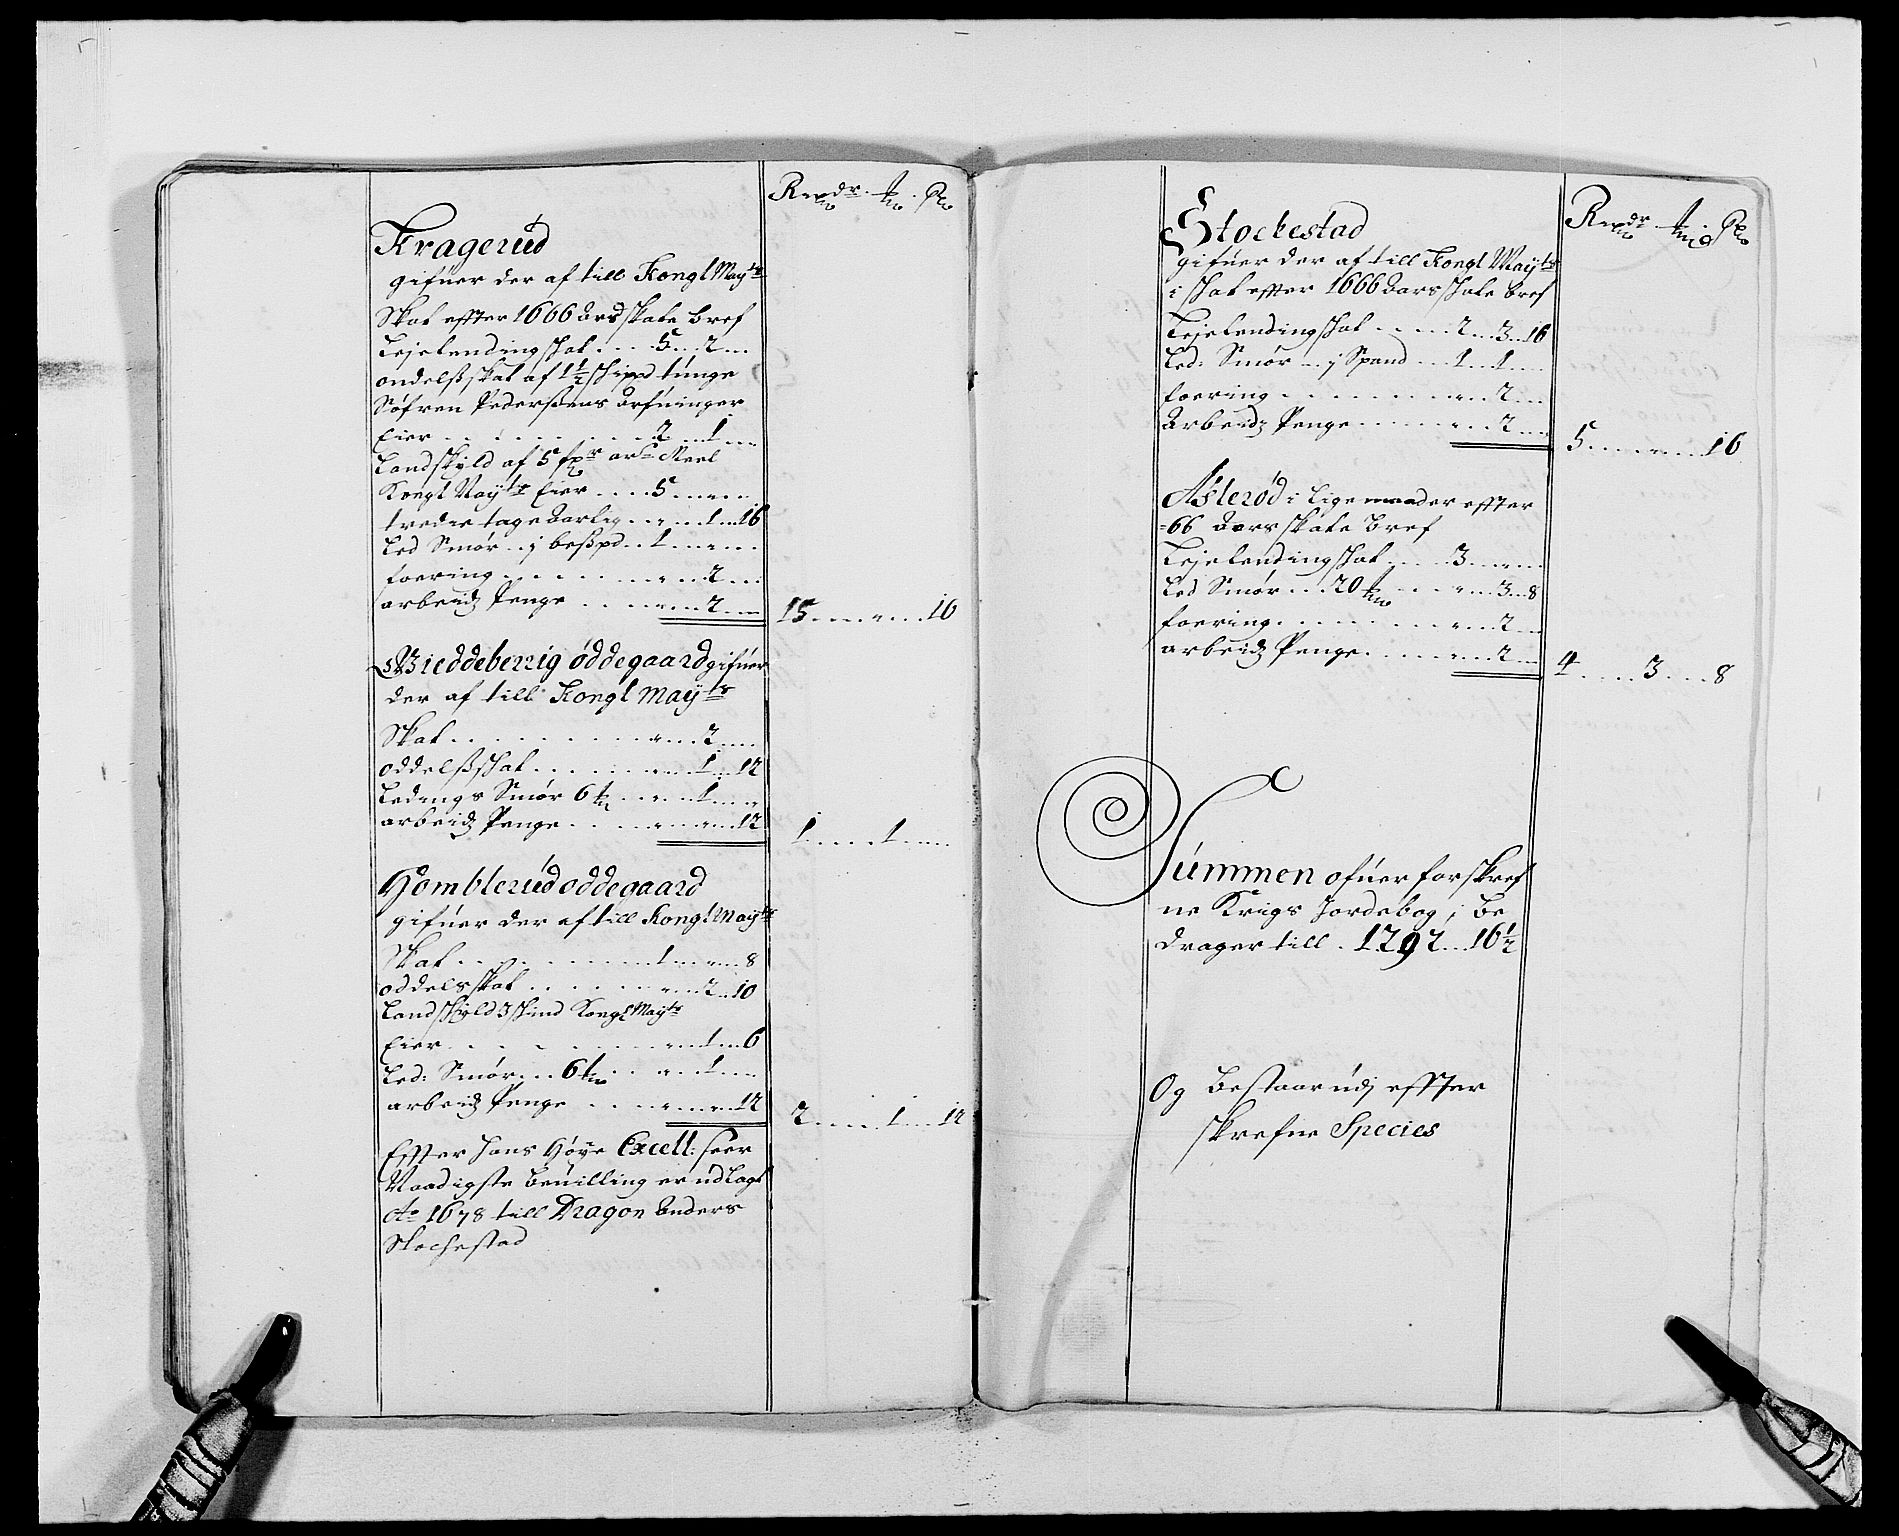 Rixdr. ʒ. ß
Kragerúd
gifúer der af till Kongl Mayts
Skat effter 1666 Aars skate bref
Leielendingskat . . . . 5 . . 2 . .
ondelsskat af 1½ skippd tunge
Søfren Pedersens arfúinger
Eier . . . . . . . 2 . . 1 . .
Landskyld af 5 Meel
Kongl Mayts Eier . . . . 5 . . . .
tredie tage Aarlig . . „ . . 1 . . 16
Led Smør . . j . . 1 . . „ . .
foering . . . . . . „ . . 2 . .
arbeidz Penge . . . . „ . . 2 . . 15 . . . . „ . . . . 16
Wieddeberrig øddegaard gifúer
der af till Kongl Mayts
Skat . . . . . . . „ . . 2 . .
oddelsskat . . . . . „ . . 1 . . 12
Ledings Smør 6 . . „ . . 1 . . „
arbeidz Penge . . . „ . . „ . . 12 1 . . . . 1 . . . .
Homblerúd oddegaard
gifúer der af till Kongl Mayts
Skat . . . . . . . 1 . . „ . . 8
oddelsskat . . . . . „ . . 2 . . 10
Landskyld 3 skind Kongl Mayts
Eier . . . . . . . „ . . 1 . . 6
Led: Smør . . . 6 . . „ . . 1 . .
arbeidz Penge . . . „ . . „ . . 12 2 . . . . 1 . . . . 12
Effter hans Høye Excell:
Naadigste beúilling er údlagt
Ao 1678 till Dragon Anders
Stochestad
Rixdr ʒ. ß
Stockestad
gifúer der af till Kongl Mayts
i skat effter 1666 Aars skate bref
Leielendingskat . . . . 2 . . 3 . . 16
Led: Smør . . j Spand . . 1 . . 1 . .
foering . . . . . . „ . . 2 . .
Arbeidz Penge . . . . „ . . 2 . . 5 . . . . „ . . . . 16
Asterød i lige maader effter
-66 Aars skate bref
Leielendingskat . . . . 3 . . „ . .
Led Smør . . . 20 . . „ . . 3 . . 8
foering . . . . . . „ . . 2 . .
arbeidz Penge . . . . „ . . 2 . . 4 . . . . 3 . . . . 8
Súmmen ofúer forskref
ne Krigs Jordebog, be
drager till . 1292 . . . 16½
Og bestaar údj effter
skrefne Species